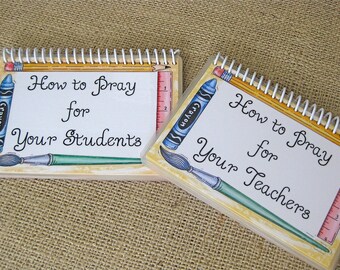 How to Pray
for
Your Students
Crayon
How to Pray
for
Your Teachers
Crayon